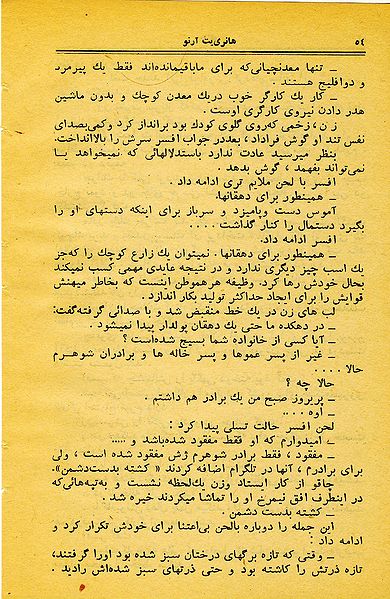 ۵۴ هانری‌یت آرنو
ــ تنها معدنچیانی‌که برای ماباقیمانده‌اند فقط یك پیرمرد
و دوافلیج هستند .
ــ کار یك کارگر خوب دریك معدن کوچك و بدون ماشین
هدر دادن نیروی کارگری اوست .
زن ، زخمی که‌روی گلوی کودك بود برانداز کرد وکمی‌بصدای
نفس تند او گوش فراداد ، بعددر جواب افسر سرش را بالاانداخت.
بنظر میرسید عادت ندارد باستدلالهائی که نمیخواهد یـا
نمی‌تواند بفهمد ، گوش بدهد .
افسر با لحن ملایم تری ادامه داد .
ــ همینطور برای دهقانها.
آموس دست وپامیزد و سرباز برای اینکه دستهای او را
بگیرد دستمال را کنار گذاشت . . . .
افسر ادامه داد.
ــ همینطور برای دهقانها . نمیتوان یك زارع کوچك را که‌جز
یك اسب چیز دیگری ندارد و در نتیجه عایدی مهمی کسب نمیکند
بحال خودش رها کرد. وظیفه هرهموطن اینست که بخاطر میهنش
قوایش را برای ایجاد حداکثر تولید بکار اندازد .
لب های زن در یك خط منقبض شد و با صدائی گرفته‌گفت:
ــ در دهکده ما حتی یك دهقان پولدار پیدا نمیشود .
ــ آیا کسی از خانواده شما بسیج شده‌است ؟
ــ غیر از پسر عموها و پسر خاله ها و برادران شوهـرم
حالا . . . .
حالا چه ؟
ــ پریروز صبح من یك برادر هم داشتم .
ــ اوه . . . .
لحن افسر حالت تسلی پیدا کرد :
ــ امیدوارم که او فقط مفقود شده‌باشد و .....
ــ مفقود ، فقط برادر شوهرم ژش مفقود شده است ، ولی
برای برادرم ، آنها در تلگرام اضافه کردند « کشته بدست‌دشمن».
چاقو از کار ایستاد وزن یك‌لحظه نشست و به‌تپه‌هائی‌که
در اینطرف افق نیمرخ او را تماشا میکردند خیره شد .
ــ کشته بدست دشمن .
این جمله را دوباره بالحن بی‌اعتنا برای خودش تکرار کرد و
ادامه داد :
ــ وقتی که تازه برگهای درختان سبز شده بود اورا گرفتند،
تازه ذرتش را کاشته بود و حتی ذرتهای سبز شده‌اش رادید .